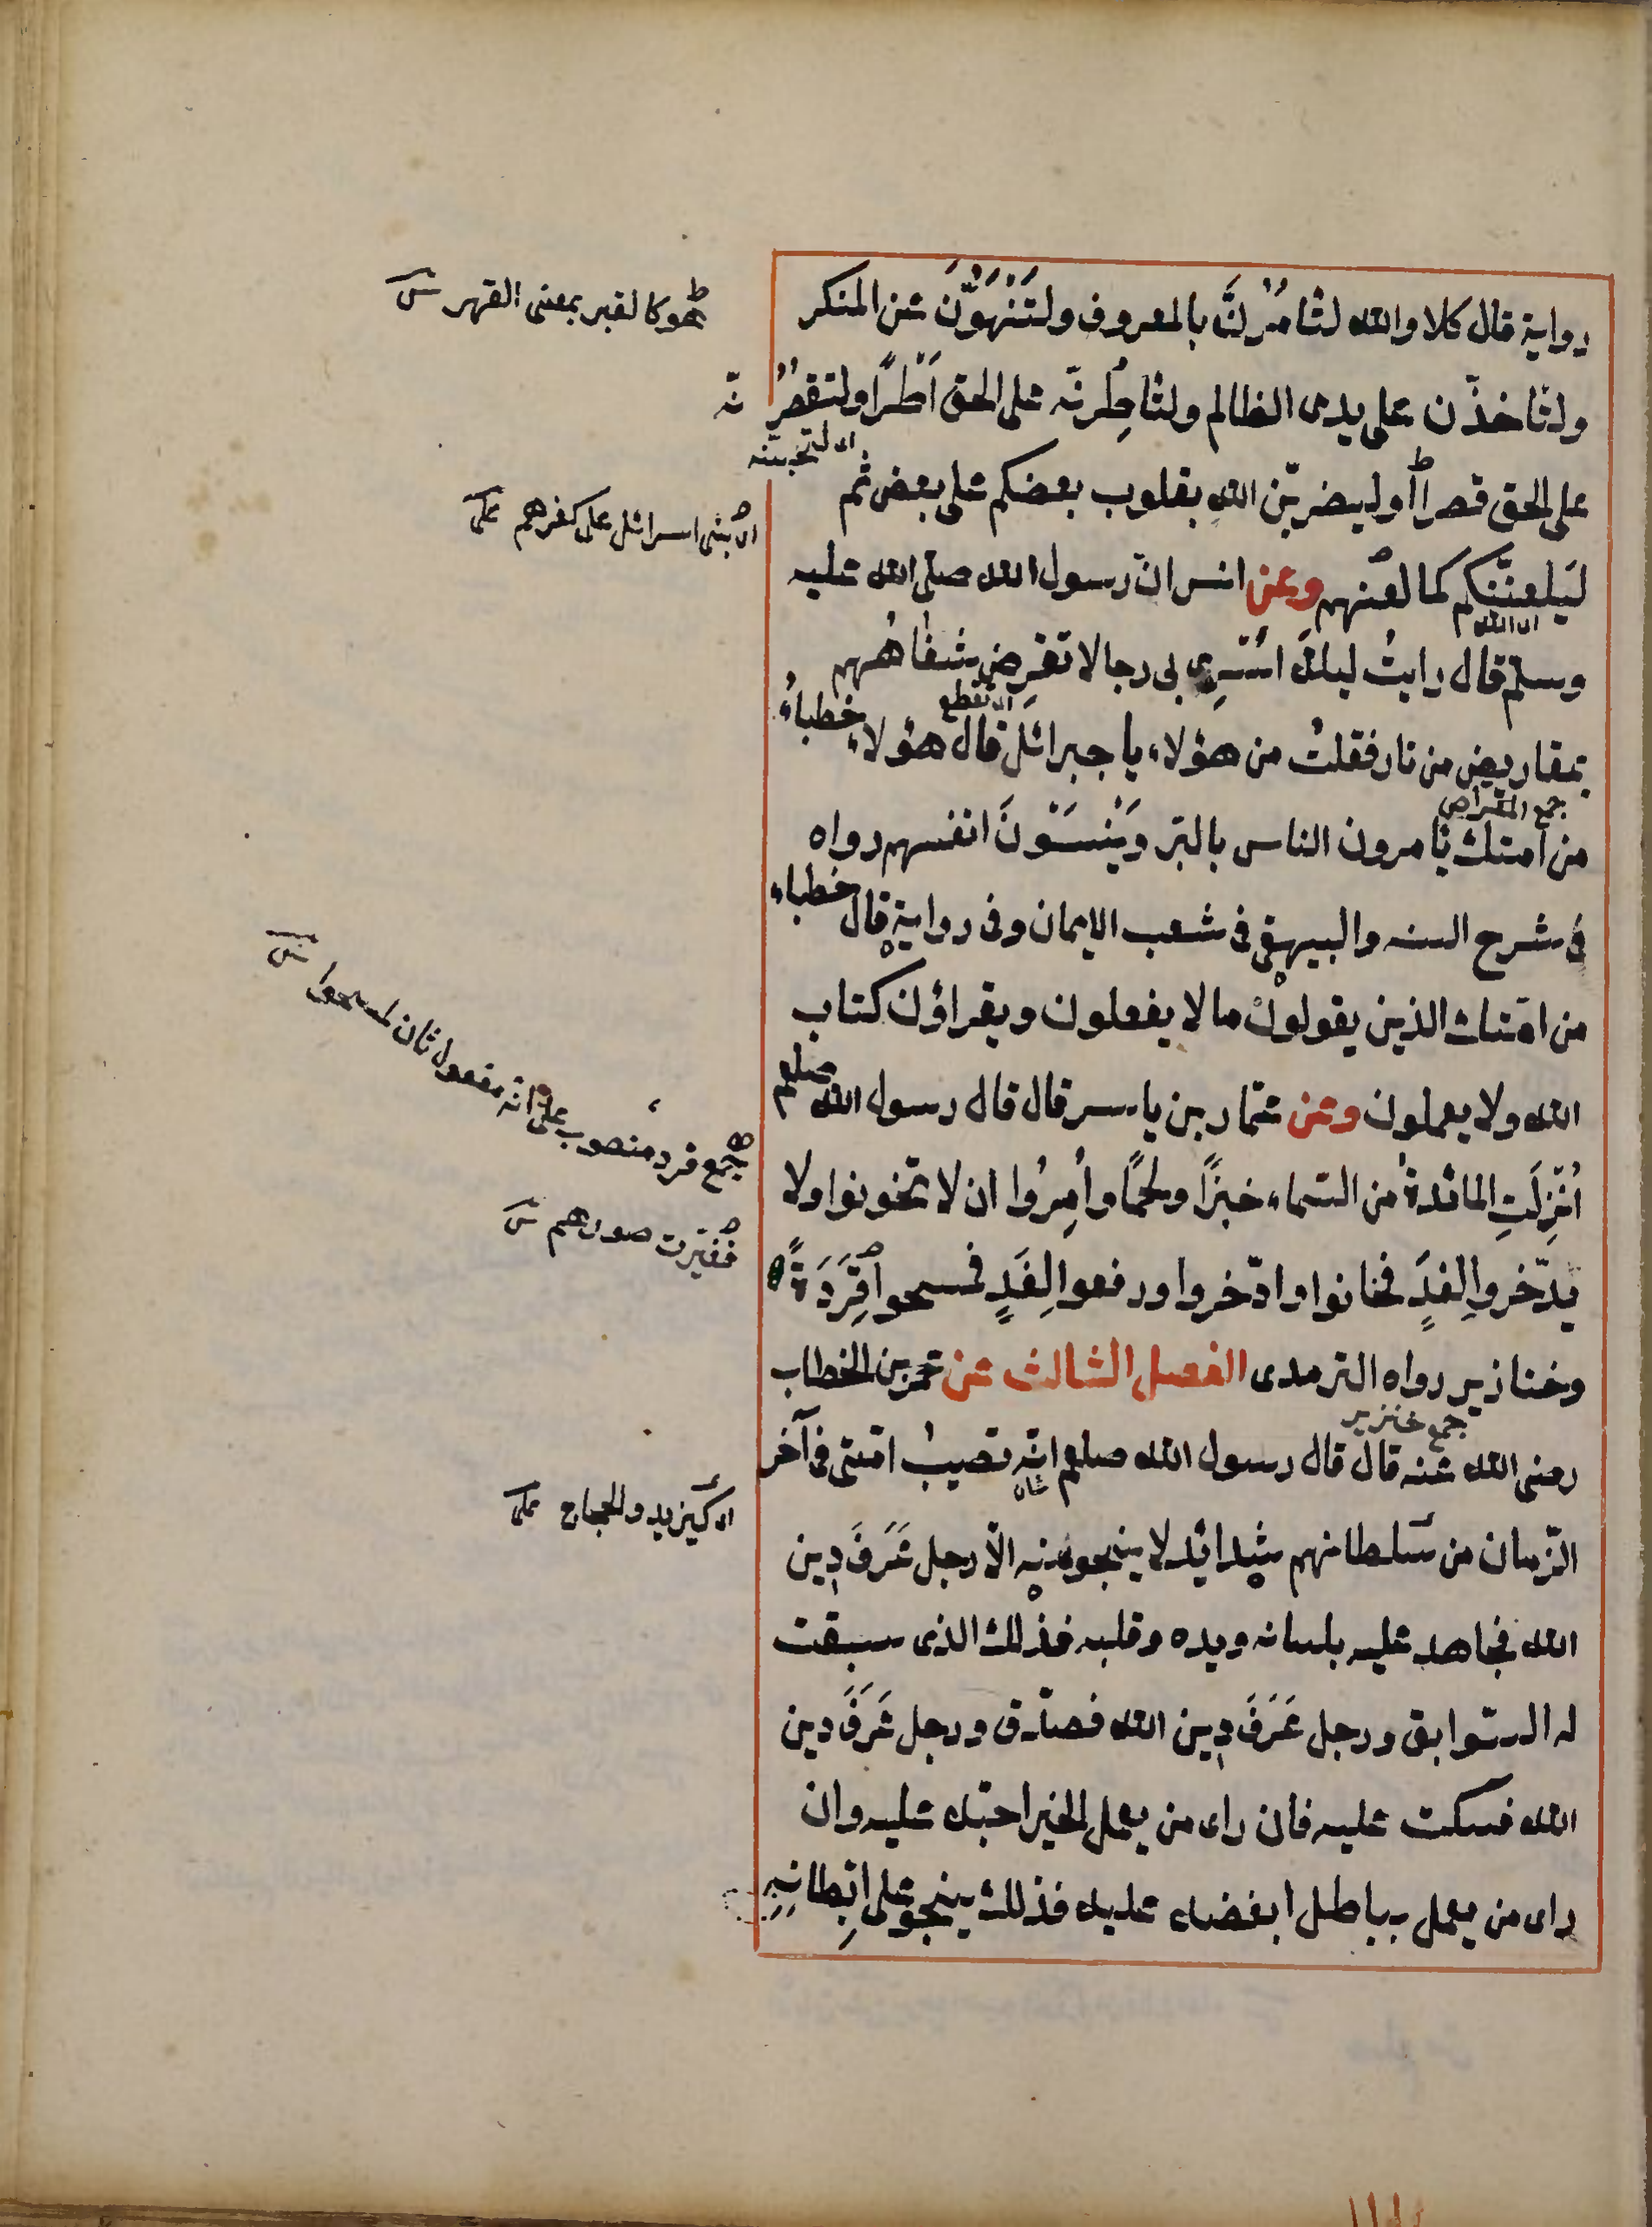 رواية قال كلا والله لتَأمُرُنَّ بالمعروف ولَتَنْهَوُنَّ عن المنكر
ولتأخذنّ على يدى الظالم ولتأطِرنّه على الحق أَطْرًا ولتقصُرُنّه
اى لتحبسنه
على الحق قصراً أو ليضربنّ الله بقلوب بعضكم على بعض ثم
ليَلعننَّكم كما لعنهم وعن انس انّ رسول الله صلّى الله عليه
اى الله
وسلم قال رايتُ ليلة اُسْرِى بى رجالا تقرِض شفاههم
اى تقطع
بمقاريض من نار فقلتُ من هؤلاء يا جبرائل قال هؤلاء خطباءُ
جمع المقراض
من امتك يأمرون الناس بالبرّ وَيَنْسَوْنَ انفسهم رواه
فى شرح السنه والبيهقى فى شعب الايمان وفى رواية قال خطباء
من امّتك الذين يقولون ما لا يفعلون ويقراؤن كتاب
الله ولا يعملون وعن عمّار بن ياسر قال قال رسول الله صلعم
اُنْزِلَتِ المائدةُ من السّماء خبزًا ولحمًا واُمِرُوا ان لا تخونوا ولا
يدّخروا لِغدٍ فخانوا وادّخروا ورفعوا لِغَدٍ فمسخوا قِرَدَةً
وخنازير رواه الترمدى الفصل الثالث عن عمر بن الخطاب
جمع خنزير
رضى الله عنه قال قال رسول الله صلعم انّه تصيبُ امّتى فى آخر
شان
الزّمان من سلطانهم شدائد لا ينجو منه الاّ رجل عَرَفَ دين
الله فجاهد عليه بلسانه ويده وقلبه فذلك الذى سبقت
له السّوابق ورجل عَرَفَ دين الله فصدّق ورجل عَرَفَ دين
الله فسكت عليه فان راى من يعمل الخير احبّه عليه وان
راى من يعمل بباطل ابغضه عليه فذلك ينجو على اِبْطانِهِ
هو كالقبر بمعنى القهر
اى بنى اسرائل على كفرهم على
جمع قرد منصوب على انّه مفعول ثان لمسخوا
فغيّرت صورهم
اى كيزيد والحجاج على